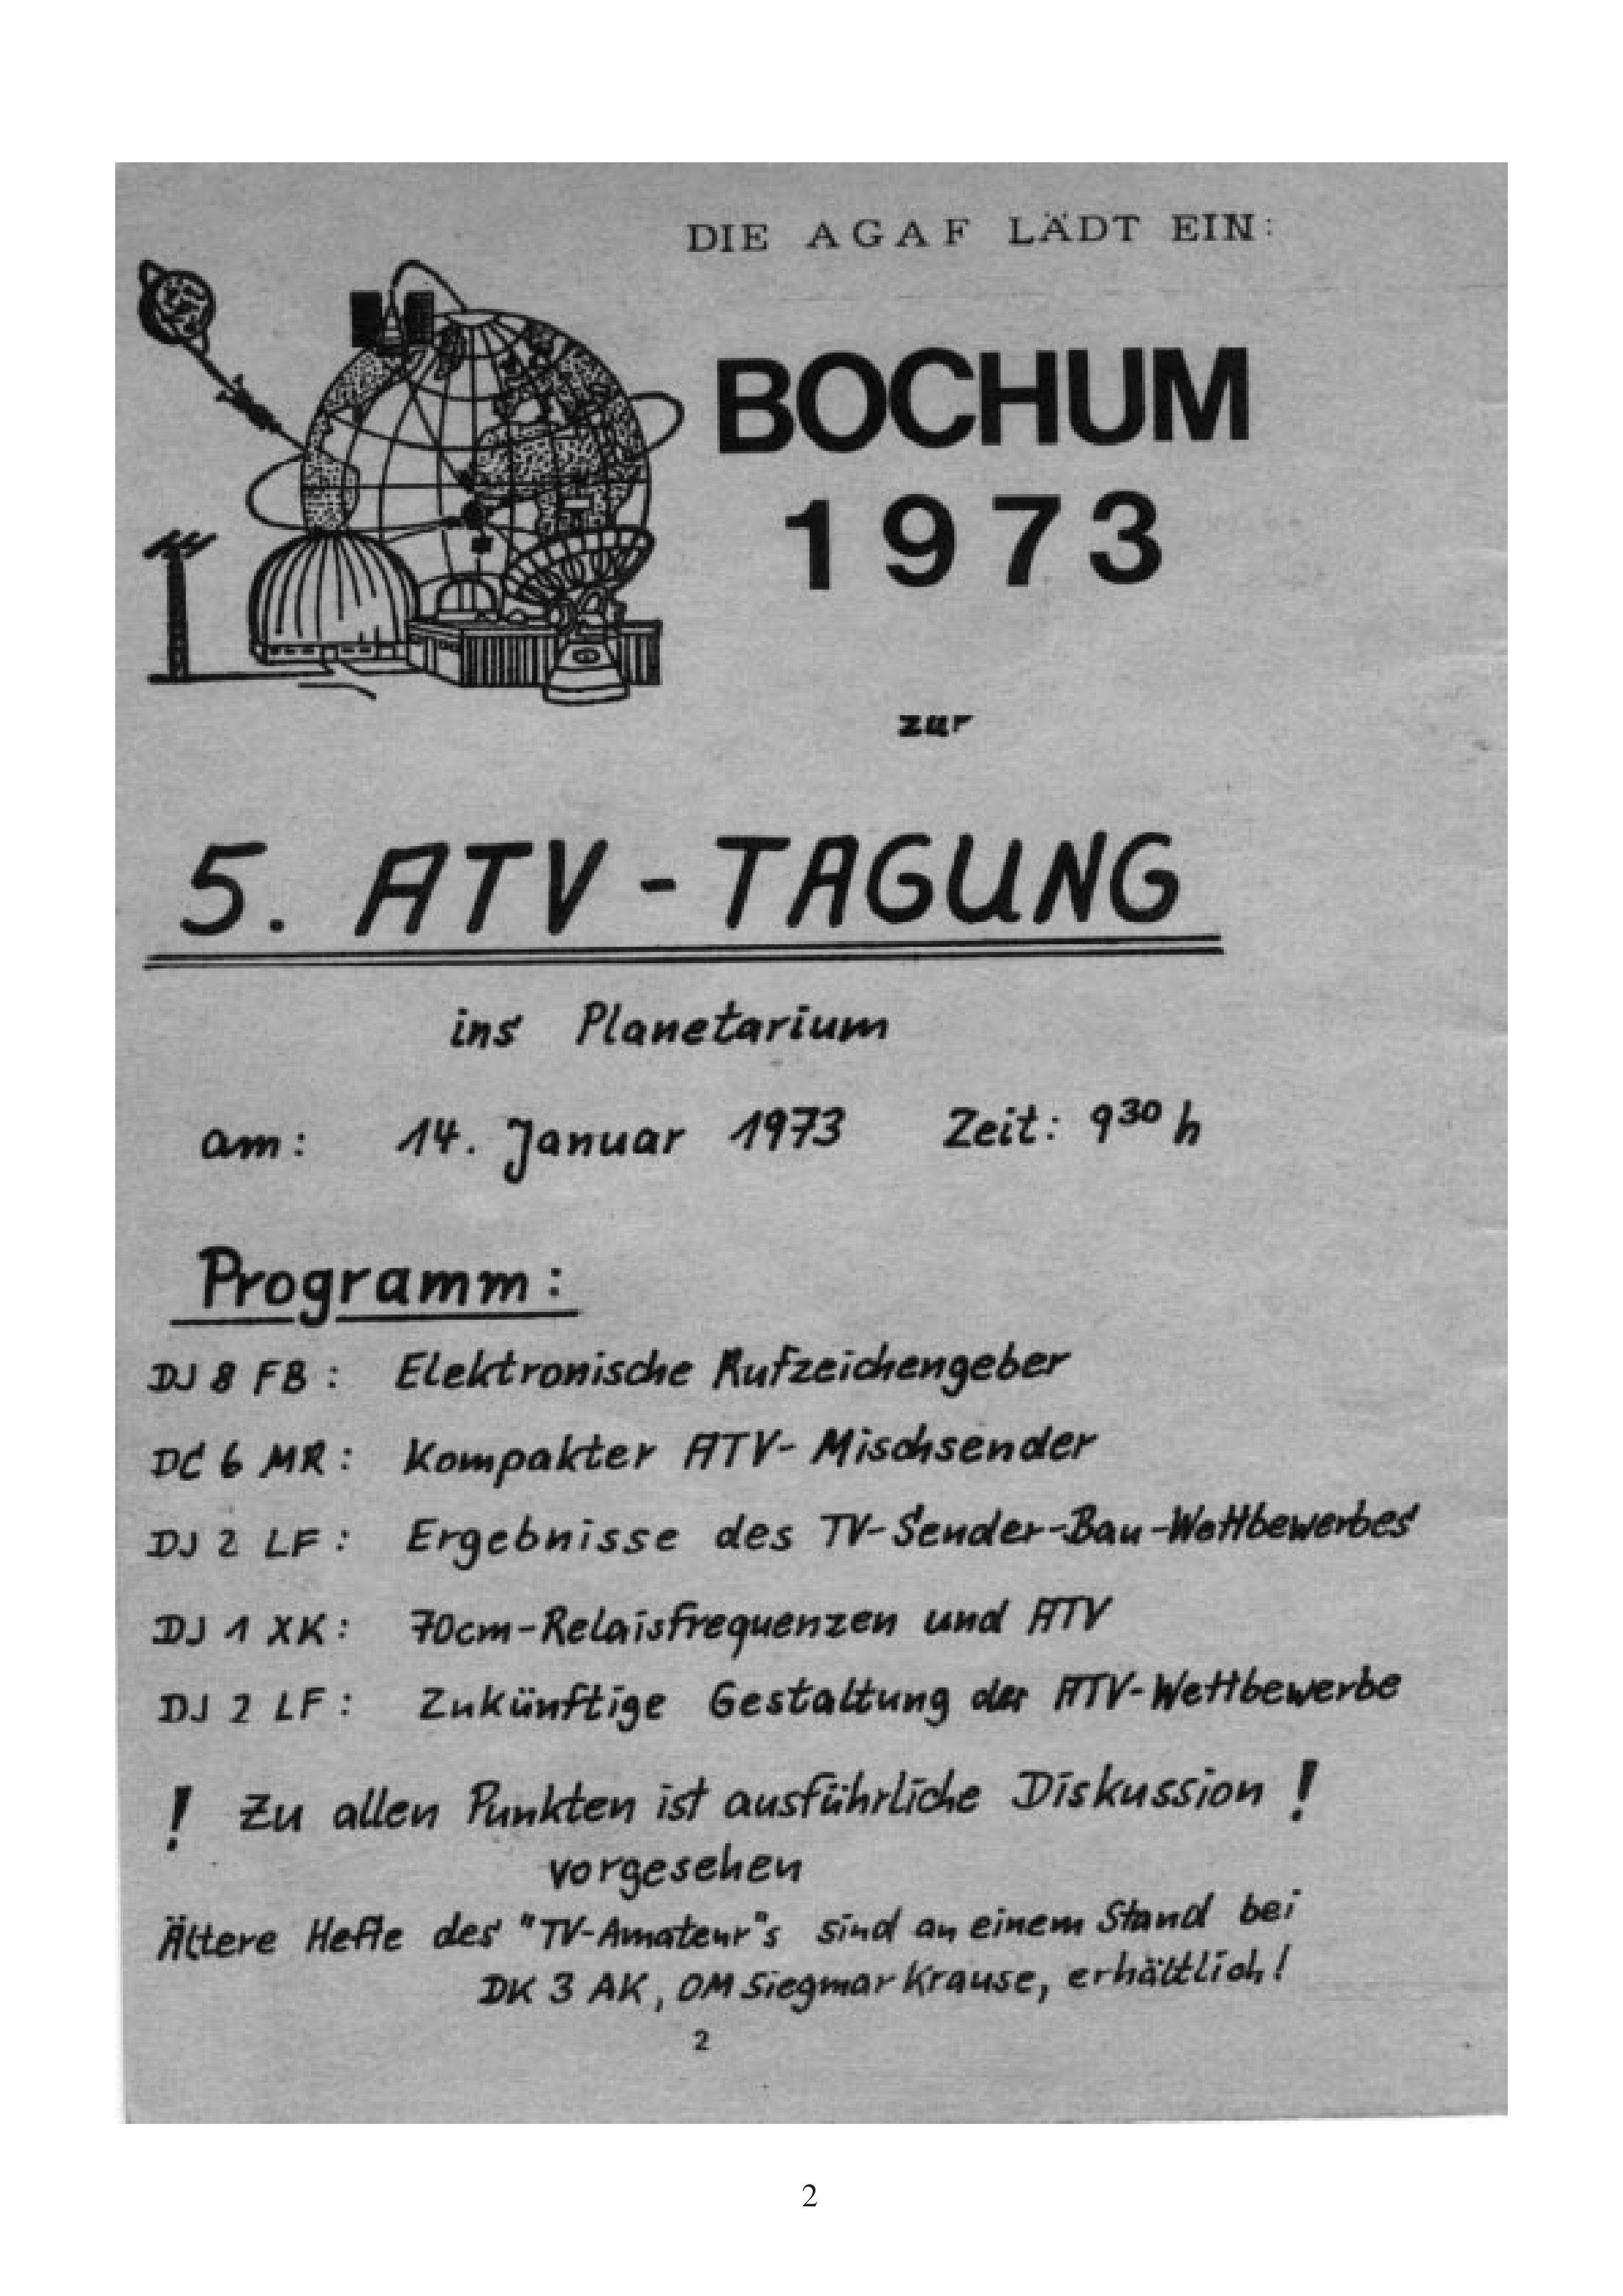 DIE AGAF LÄDT EIN:
BOCHUM
1973
zur
5. ATV-TAGUNG
ins Planetarium
am: 14. Januar 1973 Zeit: 9³⁰ h
Programm:
DJ 8 FB: Elektronische Rufzeichengeber
DC 6 MR: Kompakter ATV-Mischsender
DJ 2 LF: Ergebnisse des TV-Sender-Bau-Wettbewerbes
DJ 1 XK: 70cm-Relaisfrequenzen und ATV
DJ 2 LF: Zukünftige Gestaltung der ATV-Wettbewerbe
! Zu allen Punkten ist ausführliche Diskussion !
vorgesehen
Ältere Hefte des "TV-Amateur"s sind an einem Stand bei
DK 3 AK, OM Siegmar Krause, erhältlich!
2
2